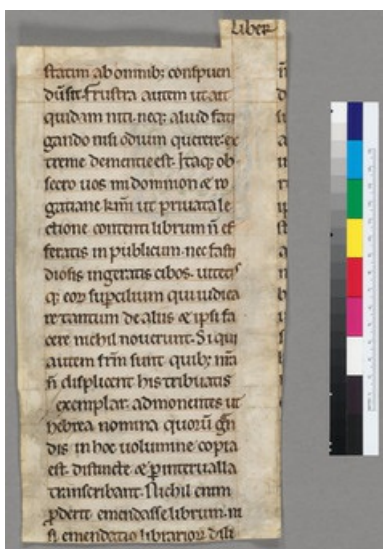 Liber
statim ab omnib; conspuen
dū sit. frustra autem ut ait
quidam niti neq; aliud fati
gando nisi odium querere: ex
treme dementie est. Itaq; ob
secro uos mi domnion & ro
gatiane k̄mi ut priuata le
ctione contenti librum n̄ ef
feratis in publicum. nec fasti
diosis ingeratis cibos. uitetis
q; eoꝝ suꝑcilium qui iudica
re tantum de aliis & ipsi fa
cere nichil nouerunt. Si qui
autem fr̄m sunt quib; nr̄a
n̄ displicent his tribuatis
exemplar. admonentes ut
hebrea nomina quorū gn̄
dis in hoc uolumine copia
est. distincte & ꝑ interualla
transcribant. Nichil enim
ꝓderit emendasse librum. ni
si emendatio librarioꝝ dili